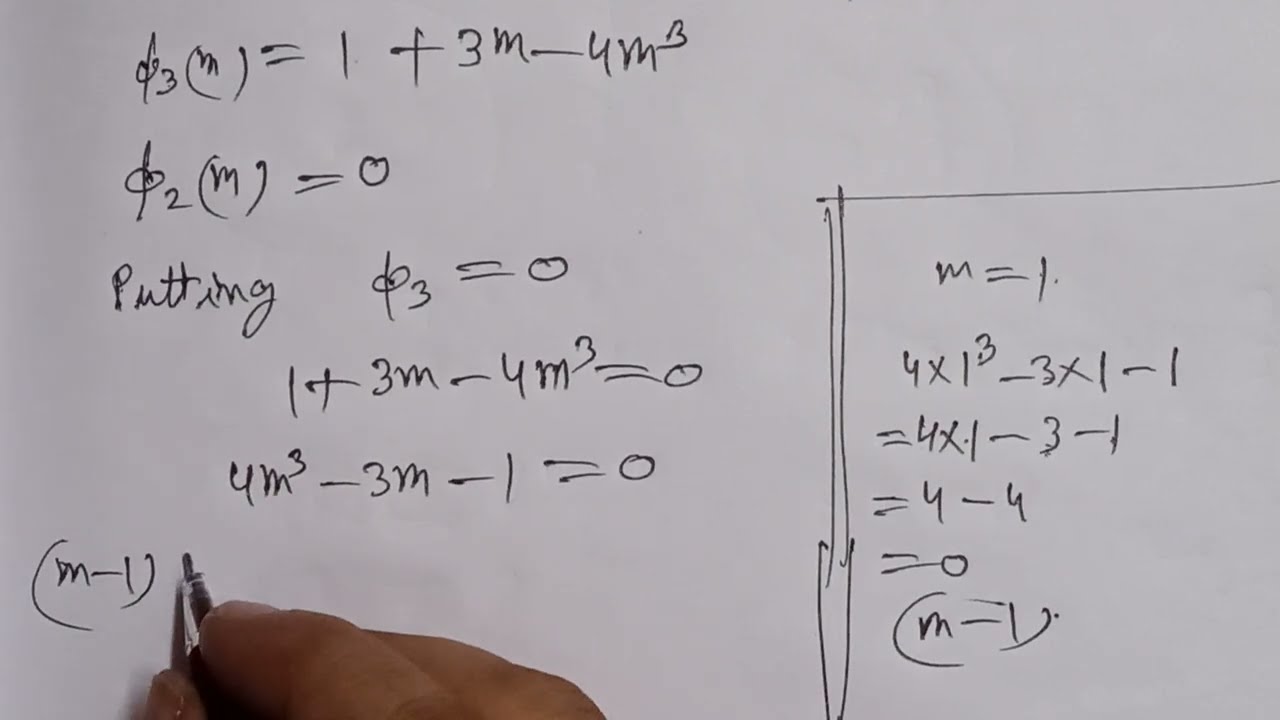 ϕ₃(m) = 1 + 3m - 4m³
ϕ₂(m) = 0
Putting ϕ₃ = 0
1 + 3m - 4m³ = 0
4m³ - 3m - 1 = 0
(m-1)
m = 1.
4×1³ - 3×1 - 1
= 4×1 - 3 - 1
= 4 - 4
= 0
(m-1).